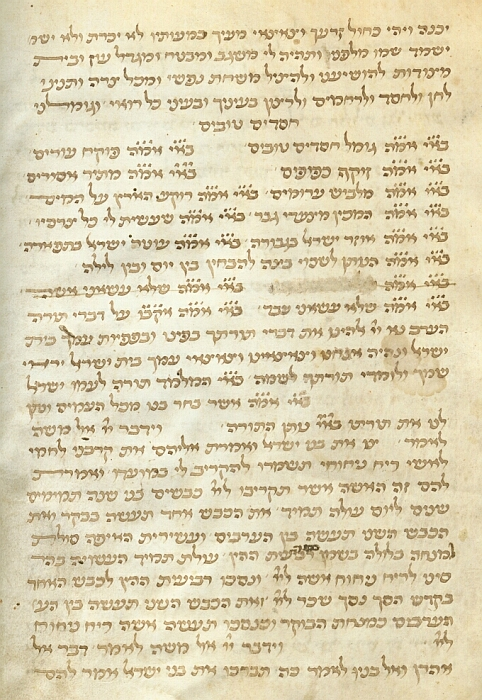 יבנה ויהי כחול זרעך וצאצאי מעיך כמעותיו לא יכרת ולא ישמ
ישמד שמו מלפני ותהיה לי משגב ומבטח ומגדל עוז ובית
מצודות להושיעני ולהציל משחת נפשי ומכל צרה ותנני
לחן ולחסד ולרחמים ולרצון בעיניך ובעיני כל רואי וגומלני
חסדים טובים
בא״י אמ״ה גומל חסדים טובים בא״י אמ״ה פוקח עורים
בא״י אמ״ה זוקף כפופים בא״י אמ״ה מתיר אסורים
בא״י אמ״ה מלביש ערומים בא״י אמ״ה רוקע הארץ על המים
בא״י אמ״ה המכין מצעדי גבר בא״י אמ״ה שעשית לי כל צרכיי
בא״י אמ״ה אוזר ישראל בגבורה בא״י אמ״ה עוטר ישראל בתפארה
בא״י אמ״ה הנותן לשכוי בינה להבחין בין יום ובין לילה
בא״י אמ״ה בא״י אמ״ה שלא עשאני אשה
בא״י אמ״ה שלא עשאני עבד בא״י אמ״ה אקבו על דברי תורה
הערב נא יי אלהינו את דברי תורתך בפינו ובפפיות עמך בית
ישראל ונהיה אנחנו וצאצאינו וצאצאי עמך בית ישראל יודעי
שמך ולומדי תורתך לשמה בא״י המלמד תורה לעמו ישראל
בא״י אמ״ה אשר בחר בנו מכל העמים ונתן
לנו את תורתו בא״י נותן התורה וידבר יי אל משה
לאמר צו את בני ישראל ואמרת אליהם את קרבני לחמי
לאשי ריח ניחוחי תשמרו להקריב לי במועדו ואמרת
להם זה האשה אשר תקריבו ליי כבשים בני שנה תמימים
שנים ליום עולה תמיד את הכבש אחד תעשה בבקר ואת
הכבש השני תעשה בין הערבים ועשירית האיפה סולת
למנחה בלולה בשמן כתית רביעית ההין עולת תמיד העשויה בהר
סיני לריח ניחוח אשה ליי ונסכו רביעית ההין לכבש האחד
בקדש הסך נסך שכר ליי ואת הכבש השני תעשה בין הער
הערבים כמנחת הבוקר וכנסכו תעשה אשה ריח ניחוח
ליי וידבר יי אל משה לאמר דבר אל
אהרן ואל בניו לאמר כה תברכו את בני ישראל אמר להם